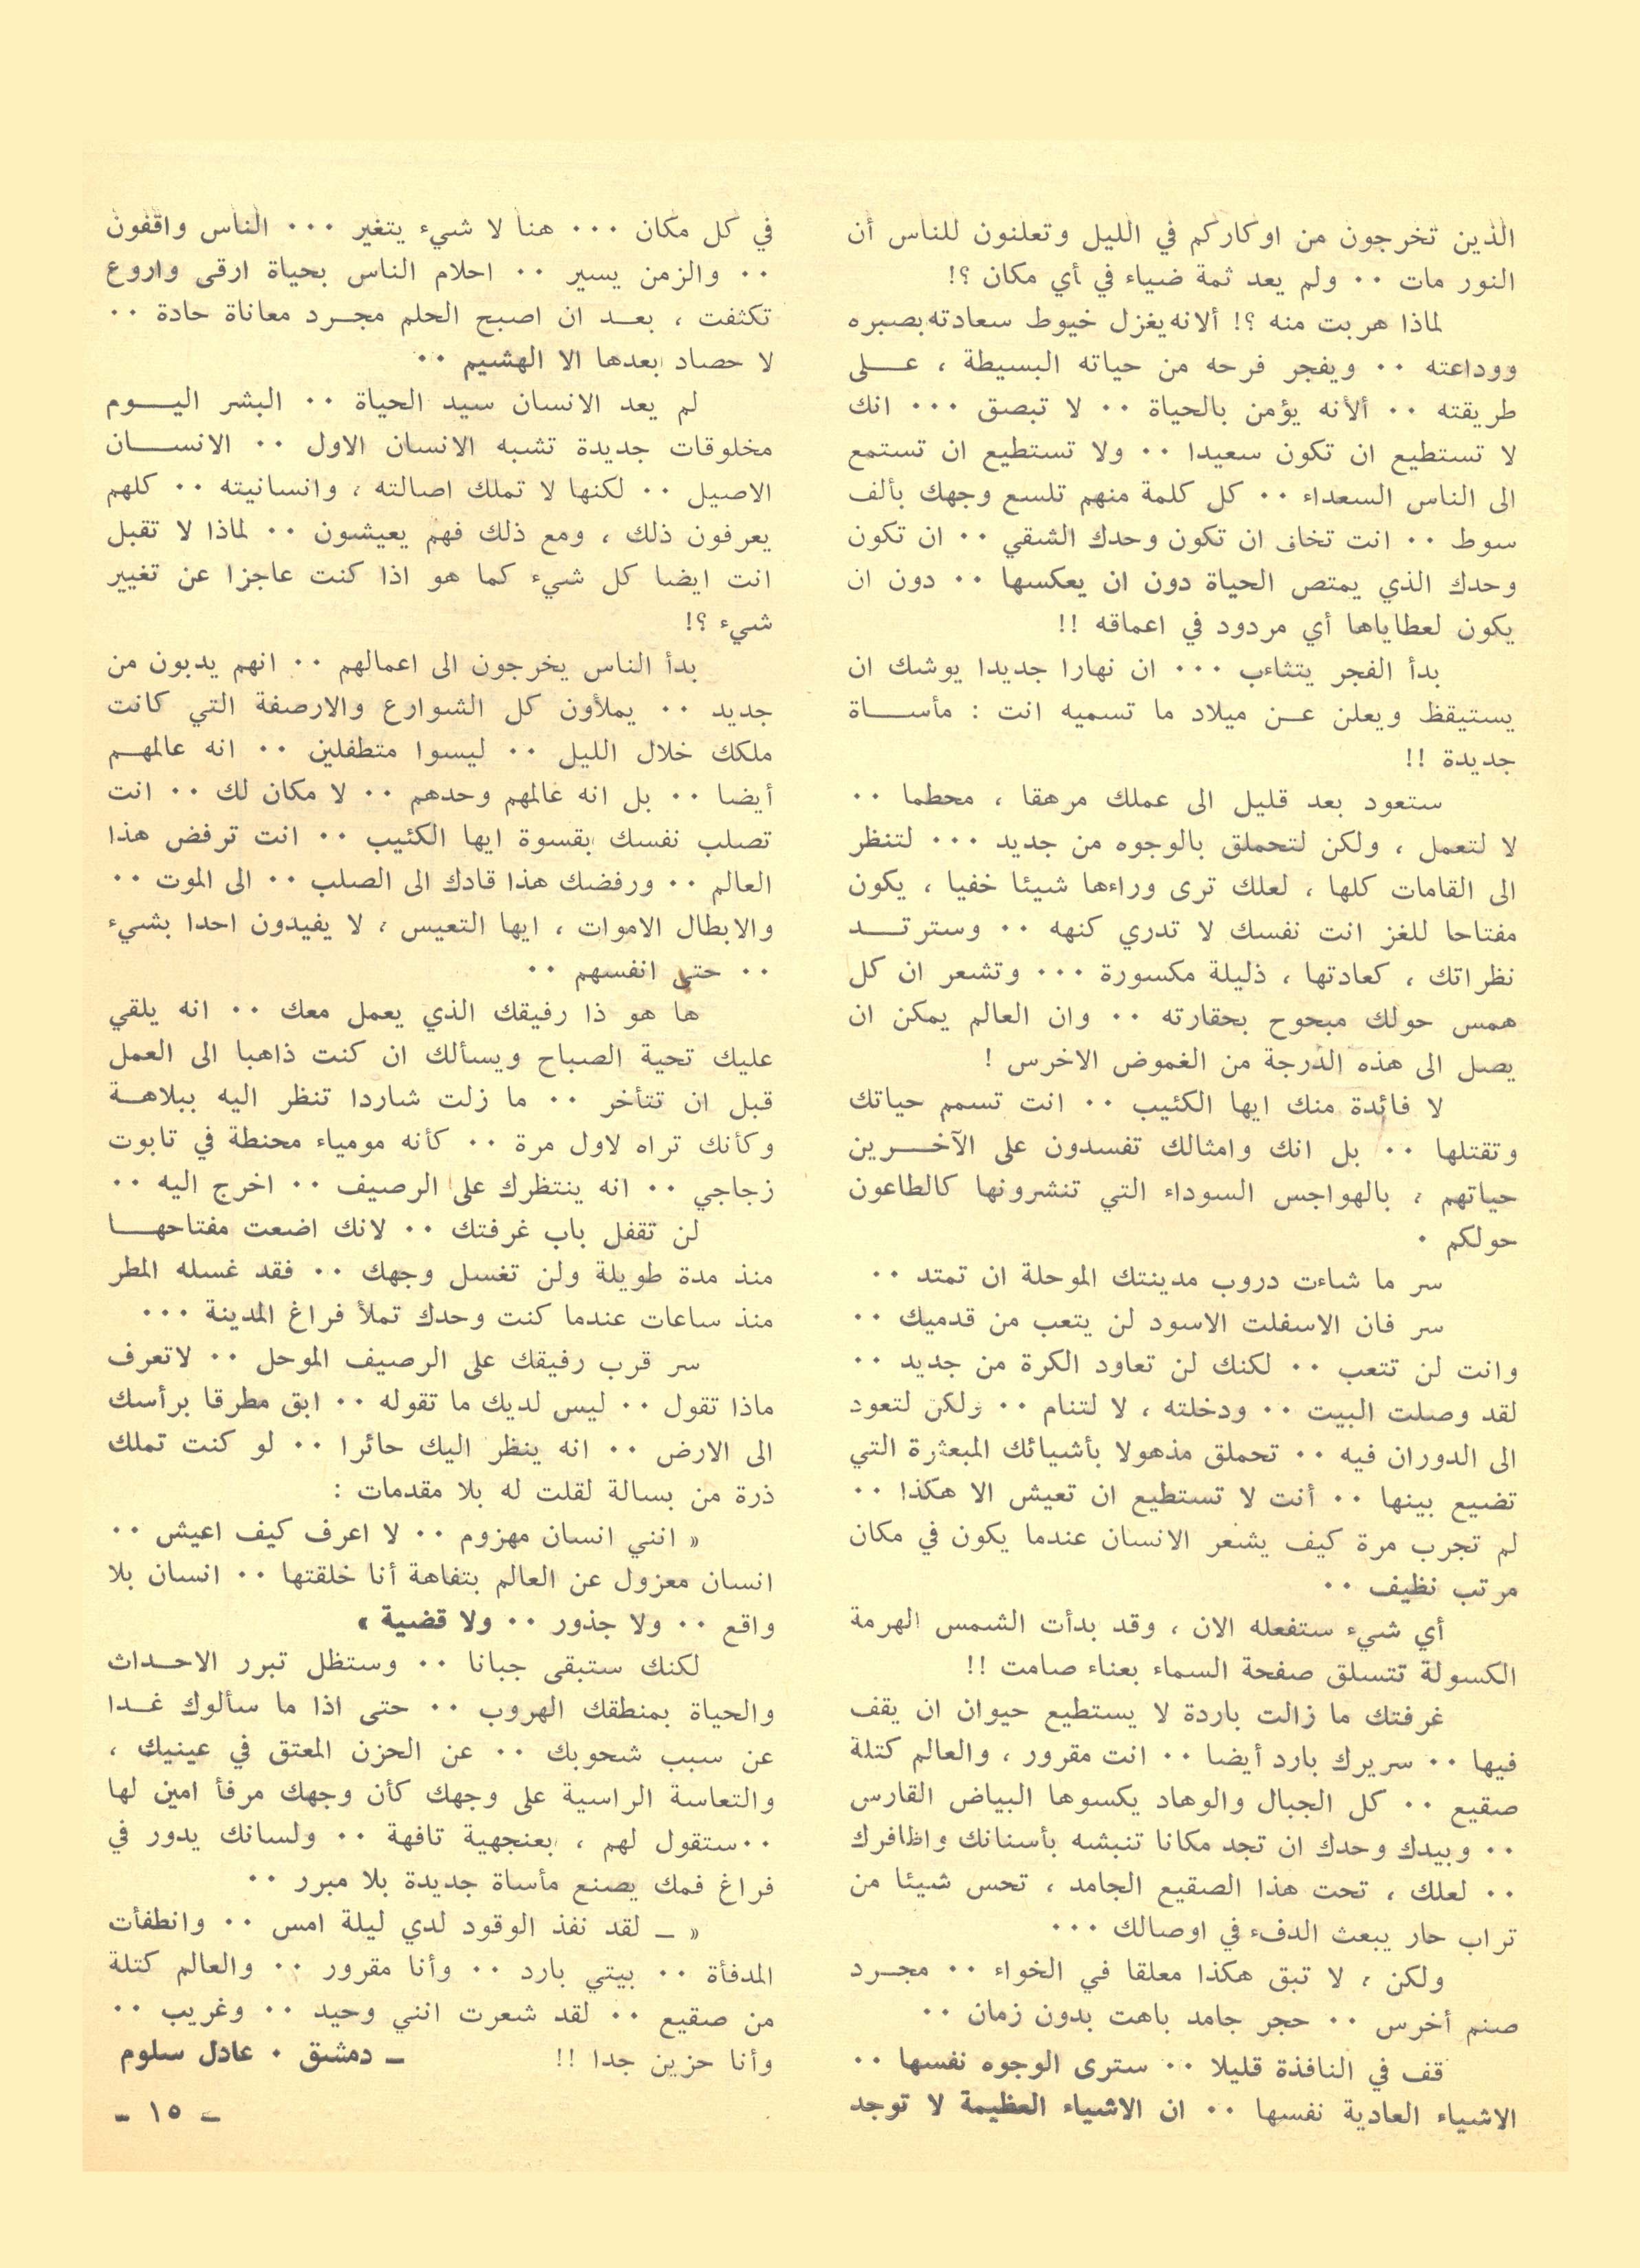 الذين تخرجون من اوكاركم في الليل وتعلنون للناس أن
النور مات ٠٠ ولم يعد ثمة ضياء في أي مكان ؟!
لماذا هربت منه ؟! ألانه يغزل خيوط سعادته بصبره
ووداعته ٠٠ ويفجر فرحه من حياته البسيطة ، عــلى
طريقته ٠٠ ألأنه يؤمن بالحياة ٠٠ لا تبصق ٠٠٠ انك
لا تستطيع ان تكون سعيدا ٠٠ ولا تستطيع ان تستمع
الى الناس السعداء ٠٠ كل كلمة منهم تلسع وجهك بألف
سوط ٠٠ انت تخاف ان تكون وحدك الشقي ٠٠ ان تكون
وحدك الذي يمتص الحياة دون ان يعكسها ٠٠ دون ان
يكون لعطاياها أي مردود في اعماقه !!
بدأ الفجر يتثاءب ٠٠٠ ان نهارا جديدا يوشك ان
يستيقظ ويعلن عــن ميلاد ما تسميه انت : مأســاة
جديدة !!
ستعود بعد قليل الى عملك مرهقا ، محطما ٠٠
لا لتعمل ، ولكن لتحملق بالوجوه من جديد ٠٠٠ لتنظر
الى القامات كلها ، لعلك ترى وراءها شيئا خفيا ، يكون
مفتاحا للغز انت نفسك لا تدري كنهه ٠٠ وسترتــد
نظراتك ، كعادتها ، ذليلة مكسورة ٠٠٠ وتشعر ان كل
همس حولك مبحوح بحقارته ٠٠ وان العالم يمكن ان
يصل الى هذه الدرجة من الغموض الاخرس !
لا فائدة منك ايها الكئيب ٠٠ انت تسمم حياتك
وتقتلها ٠٠ بل انك وامثالك تفسدون على الآخــرين
حياتهم ، بالهواجس السوداء التي تنشرونها كالطاعون
حولكم ٠
سر ما شاءت دروب مدينتك الموحلة ان تمتد ٠٠
سر فان الاسفلت الاسود لن يتعب من قدميك ٠٠
وانت لن تتعب ٠٠ لكنك لن تعاود الكرة من جديد ٠٠
لقد وصلت البيت ٠٠ ودخلته ، لا لتنام ٠٠ ولكن لتعود
الى الدوران فيه ٠٠ تحملق مذهولا بأشيائك المبعثرة التي
تضيع بينها ٠٠ أنت لا تستطيع ان تعيش الا هكذا ٠٠
لم تجرب مرة كيف يشعر الانسان عندما يكون في مكان
مرتب نظيف ٠٠
أي شيء ستفعله الان ، وقد بدأت الشمس الهرمة
الكسولة تتسلق صفحة السماء بعناء صامت !!
غرفتك ما زالت باردة لا يستطيع حيوان ان يقف
فيها ٠٠ سريرك بارد أيضا ٠٠ انت مقرور ، والعالم كتلة
صقيع ٠٠ كل الجبال والوهاد يكسوها البياض القارس
٠٠ وبيدك وحدك ان تجد مكانا تنبشه بأسنانك واظافرك
٠٠ لعلك ، تحت هذا الصقيع الجامد ، تحس شيئا من
تراب حار يبعث الدفء في اوصالك ٠٠٠
ولكن ، لا تبق هكذا معلقا في الخواء ٠٠ مجــرد
صنم أخرس ٠٠ حجر جامد باهت بدون زمان ٠٠
قف في النافذة قليلا ٠٠ سترى الوجوه نفسها ٠٠
الاشياء العادية نفسها ٠٠ ان الاشياء العظيمة لا توجد
في كل مكان ٠٠٠ هنا لا شيء يتغير ٠٠٠ الناس واقفون
٠٠ والزمن يسير ٠٠ احلام الناس بحياة ارقى واروع
تكثفت ، بعــد ان اصبح الحلم مجــرد معاناة حادة ٠٠
لا حصاد بعدها الا الهشيم ٠٠
لم يعد الانسان سيد الحياة ٠٠ البشر اليــوم
مخلوقات جديدة تشبه الانسان الاول ٠٠ الانســان
الاصيل ٠٠ لكنها لا تملك اصالته ، وانسانيته ٠٠ كلهم
يعرفون ذلك ، ومع ذلك فهم يعيشون ٠٠ لماذا لا تقبل
انت ايضا كل شيء كما هو اذا كنت عاجزا عن تغيير
شيء ؟!
بدأ الناس يخرجون الى اعمالهم ٠٠ انهم يدبون من
جديد ٠٠ يملأون كل الشوارع والارصفة التي كانت
ملكك خلال الليل ٠٠ ليسوا متطفلين ٠٠ انه عالمهــم
أيضا ٠٠ بل انه عالمهم وحدهم ٠٠ لا مكان لك ٠٠ انت
تصلب نفسك بقسوة ايها الكئيب ٠٠ انت ترفض هذا
العالم ٠٠ ورفضك هذا قادك الى الصلب ٠٠ الى الموت ٠٠
والابطال الاموات ، ايها التعيس ، لا يفيدون احدا بشيء
٠٠ حتى انفسهم ٠٠
ها هو ذا رفيقك الذي يعمل معك ٠٠ انه يلقي
عليك تحية الصباح ويسألك ان كنت ذاهبا الى العمل
قبل ان تتأخر ٠٠ ما زلت شاردا تنظر اليه ببلاهــة
وكأنك تراه لاول مرة ٠٠ كأنه مومياء محنطة في تابوت
زجاجي ٠٠ انه ينتظرك على الرصيف ٠٠ اخرج اليه ٠٠
لن تقفل باب غرفتك ٠٠ لانك اضعت مفتاحهــا
منذ مدة طويلة ولن تغسل وجهك ٠٠ فقد غسله المطر
منذ ساعات عندما كنت وحدك تملأ فراغ المدينة ٠٠٠
سر قرب رفيقك على الرصيف الموحل ٠٠ لاتعرف
ماذا تقول ٠٠ ليس لديك ما تقوله ٠٠ ابق مطرقا برأسك
الى الارض ٠٠ انه ينظر اليك حائرا ٠٠ لو كنت تملك
ذرة من بسالة لقلت له بلا مقدمات :
« انني انسان مهزوم ٠٠ لا اعرف كيف اعيش ٠٠
انسان معزول عن العالم بتفاهة أنا خلقتها ٠٠ انسان بلا
واقع ٠٠ ولا جذور ٠٠ ولا قضية »
لكنك ستبقى جبانا ٠٠ وستظل تبرر الاحــداث
والحياة بمنطقك الهروب ٠٠ حتى اذا ما سألوك غــدا
عن سبب شحوبك ٠٠ عن الحزن المعتق في عينيك ،
والتعاسة الراسية على وجهك كأن وجهك مرفأ امين لها
٠٠ستقول لهم ، بعنجهية تافهة ٠٠ ولسانك يدور في
فراغ فمك يصنع مأساة جديدة بلا مبرر ٠٠
« ــ لقد نفذ الوقود لدي ليلة امس ٠٠ وانطفأت
المدفأة ٠٠ بيتي بارد ٠٠ وأنا مقرور ٠٠ والعالم كتلة
من صقيع ٠٠ لقد شعرت انني وحيد ٠٠ وغريب ٠٠
وأنا حزين جدا !! ــ دمشق ٠ عادل سلوم
ــ ١٥ ــ